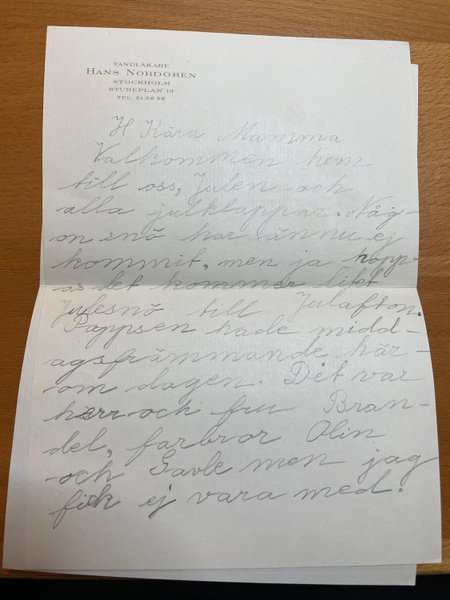 TANDLÄKARE
HANS NORDGREN
STOCKHOLM
STUREPLAN 19
TEL. 21 56 58
H Kära Mamma
Valkommen hem
till oss, Julen och
alla julklappar. Någ-
on snö har ännu ej
kommit, men ja hopp-
as det kommer litet
Julesnö till Julafton.
Pappsen hade midd-
agsfrämmande här-
om dagen. Det var
herr och fru Bran-
del, farbror Olin
och men jag
fick ej vara med.